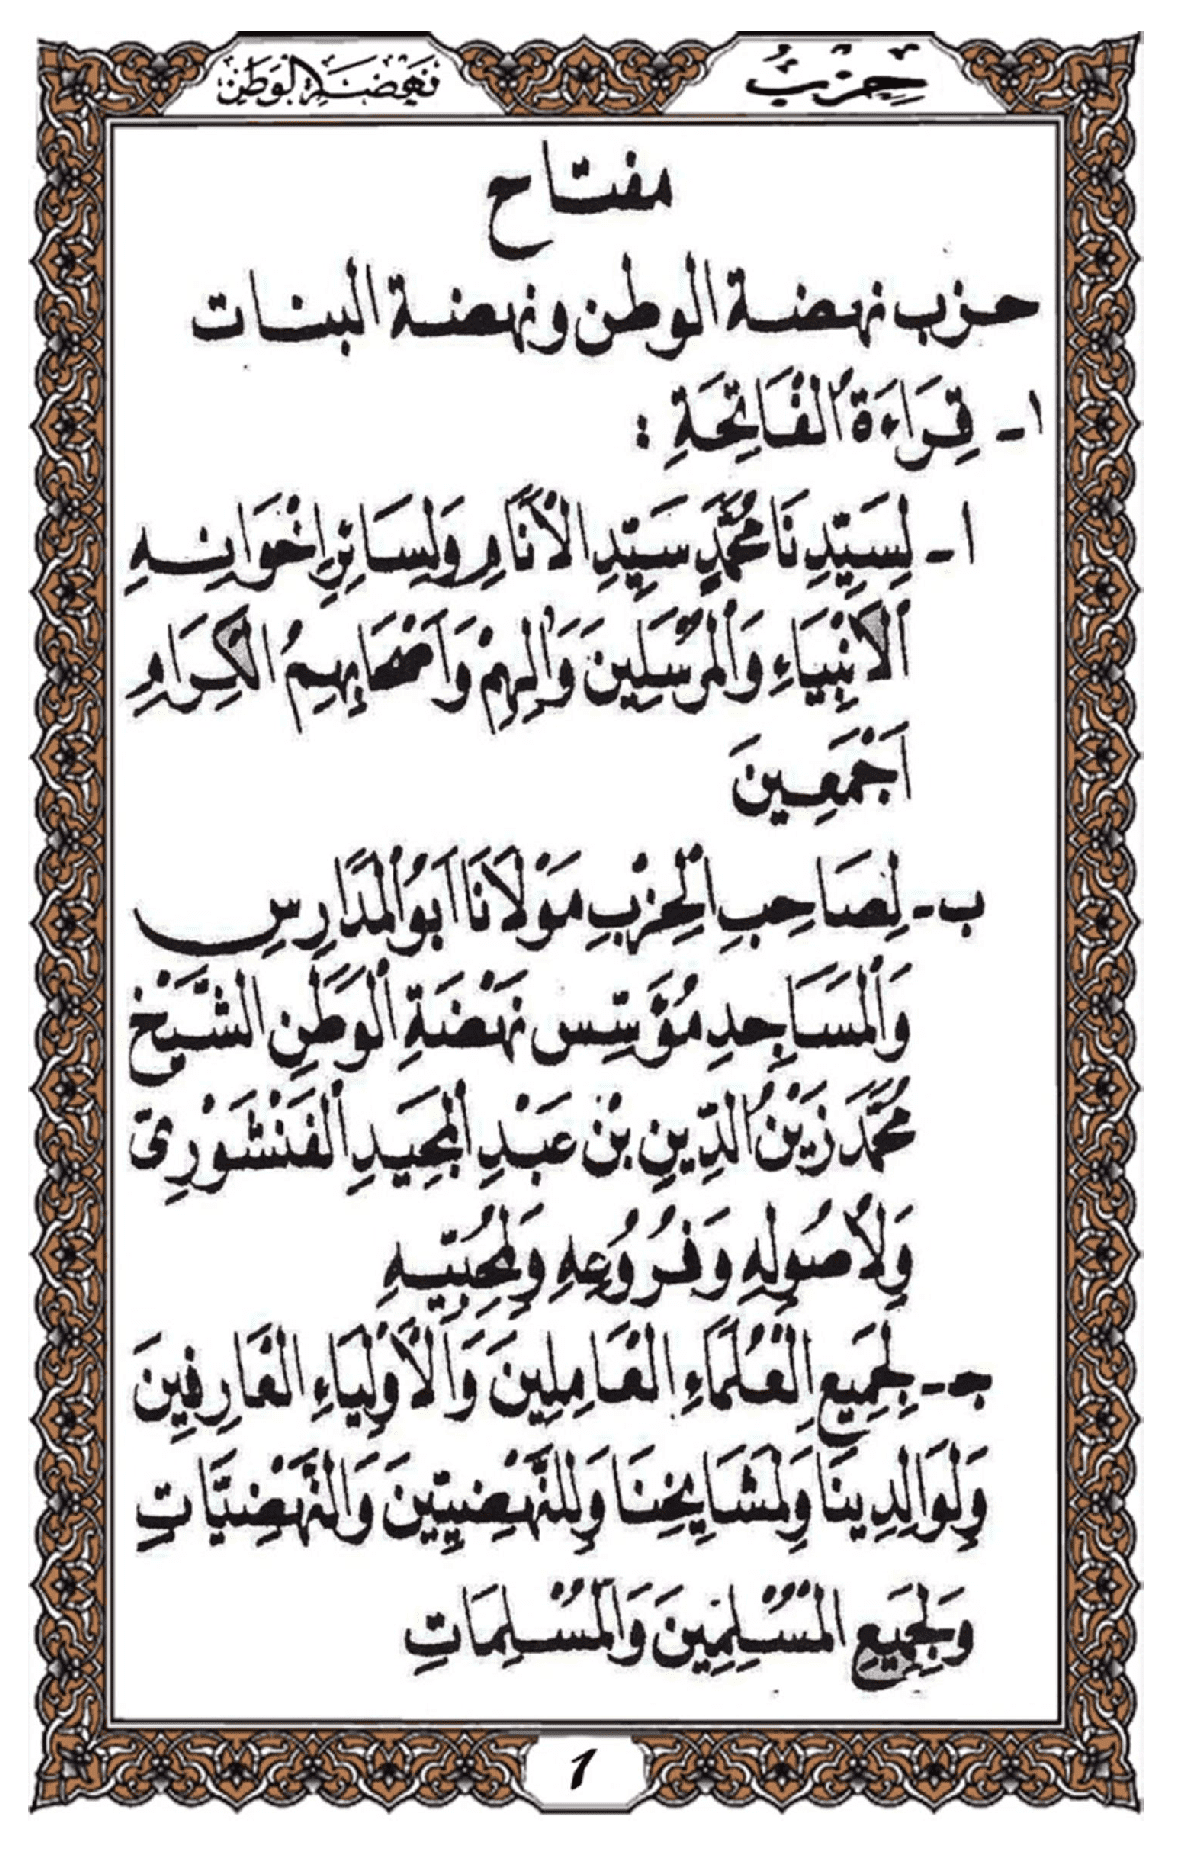 حِزْبُ
نَهْضَةِ الْوَطَنِ
مفتاح
حزب نهضة الوطن ونهضة البنات
١- قِرَاءَةُ الْفَاتِحَةِ :
ا- لِسَيِّدِنَا مُحَمَّدٍ سَيِّدِ الْأَنَامِ وَلِسَائِرِ اِخْوَانِهِ
الْأَنْبِيَاءِ وَالْمُرْسَلِينَ وَاٰلِهِمْ وَاَصْحَابِهِمُ الْكِرَامِ
اَجْمَعِينَ
ب- لِصَاحِبِ الْحِزْبِ مَوْلَانَا اَبُو الْمَدَارِسِ
وَالْمَسَاجِدِ مُؤَسِّسِ نَهْضَةِ الْوَطَنِ الشَّيْخِ
مُحَمَّد زَيْنُ الدِّينِ بْنِ عَبْدِ الْمَجِيدِ الْفَنْشَوْرِيّ
وَلِأُصُولِهِ وَفُرُوعِهِ وَلِمُحِبِّيهِ
جـ- لِجَمِيعِ الْعُلَمَاءِ الْعَامِلِينَ وَالْأَوْلِيَاءِ الْعَارِفِينَ
وَلِوَالِدِينَا وَلِمَشَايِخِنَا وَلِلنَّهْضِيِّينَ وَالنَّهْضِيَّاتِ
وَلِجَمِيعِ الْمُسْلِمِينَ وَالْمُسْلِمَاتِ
1